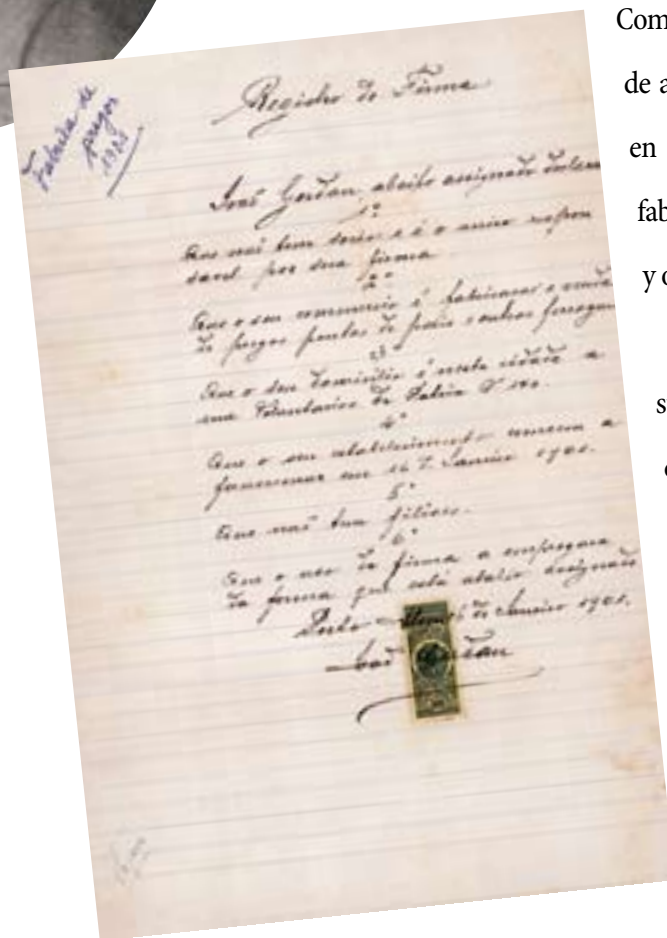 Com
de a
en
fab
y
s
Fabrica de
pregos
1901
Registro de Firma
João Gerdau abaixo assignado declara
1º
Que naõ tem socio e é o unico respon
savel por sua firma
2º
Que o seu commercio é fabricar e vender
de pregos pontas de pariz e outras ferragens
3º
Que o seu domicilio é nesta cidade a
rua Voluntarios da Patria Nº
4º
Que o seu estabelecimento começou a
funccionar em 16 de Janeiro 1901.
5º
Que naõ tem filiaes.
6º
Que o uso da firma a empregara
da forma que está abaixo assignado
Porto de Janeiro 1901.
João Gerdau